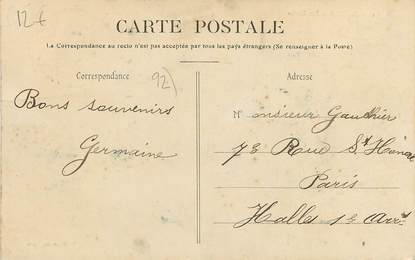 12€
CARTE POSTALE
La Correspondance au recto n'est pas acceptée par tous les pays étrangers (Se renseigner à la Poste)
Correspondance
92)
Adresse
Bons souvenirs
Germaine
Monsieur Gauthier
73 Rue St Honoré
Paris
Halles 1e Arrt